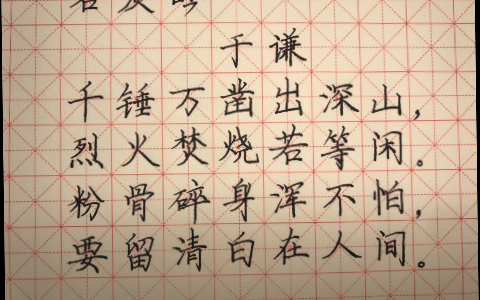 于谦
千锤万凿出深山，
烈火焚烧若等闲。
粉骨碎身浑不怕，
要留清白在人间。